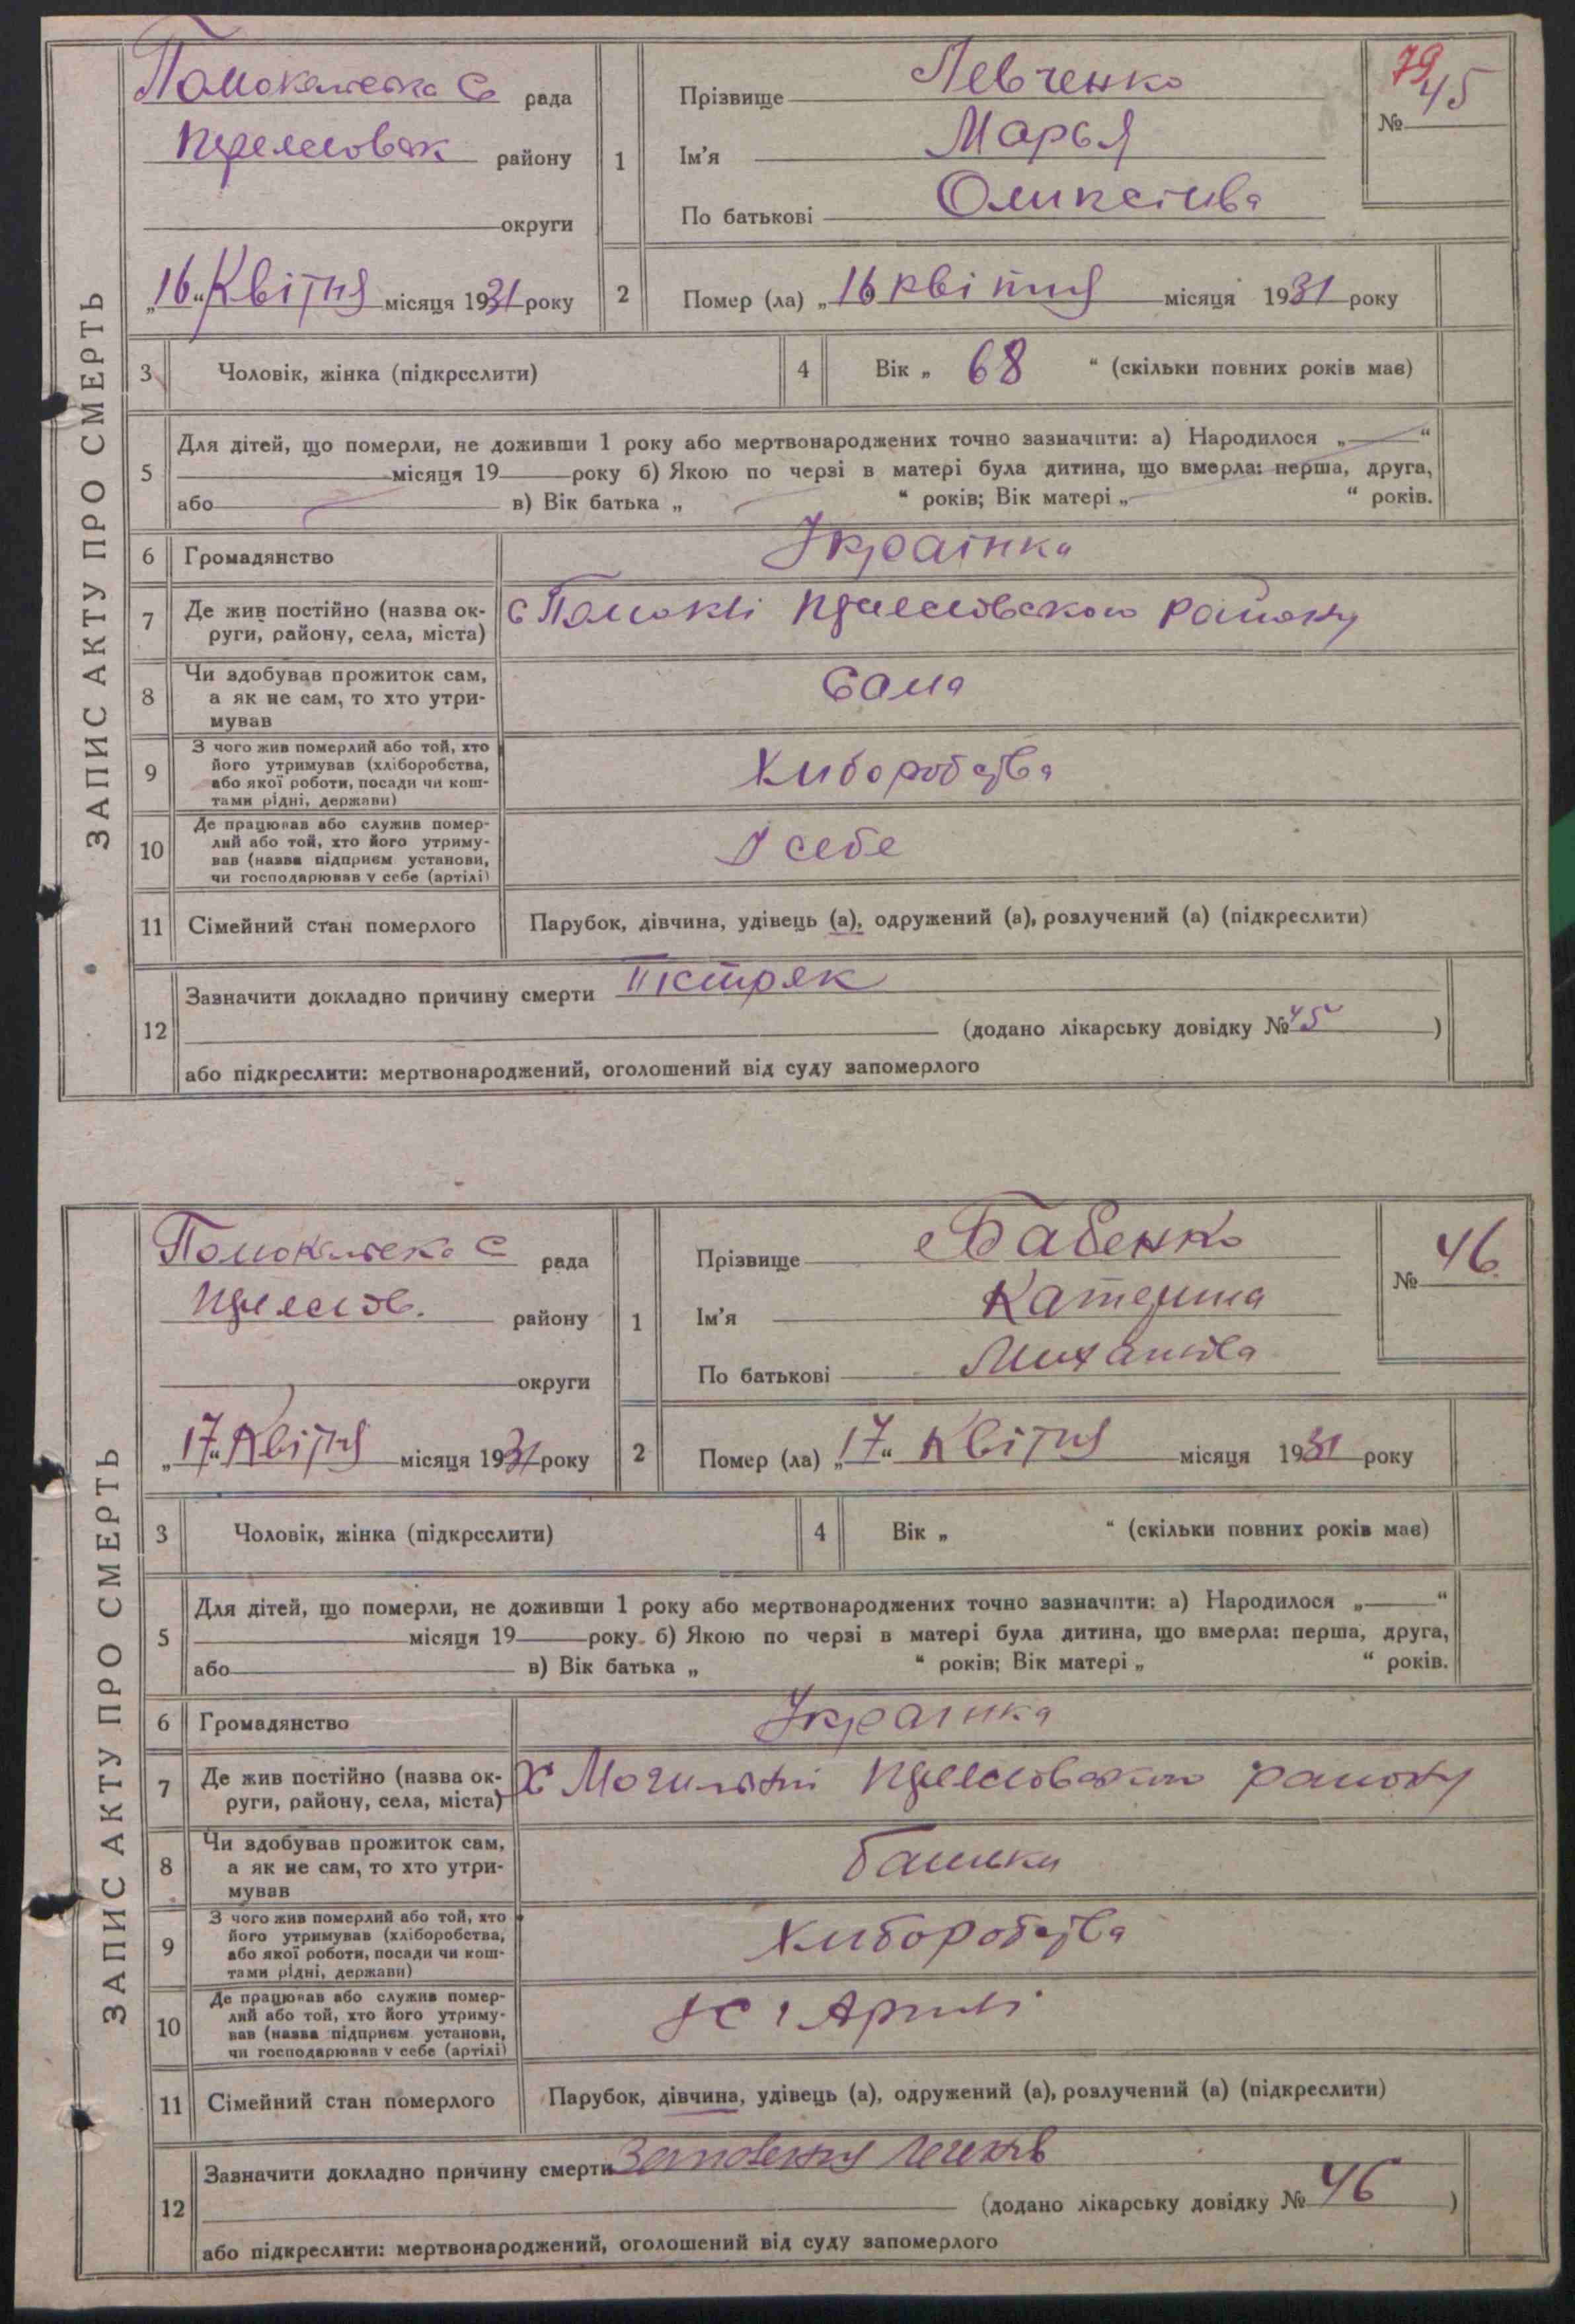 ЗАПИС АКТУ ПРО СМЕРТЬ
Помокельска С рада
району
округи
„16“ Квітня місяця 1931 року
1
Прізвище Левченко
Ім'я Марья
По батькові Оликсіива
79
№ 45
2
Помер (ла) „16 квітня місяця 1931 року
3 Чоловік, жінка (підкреслити)
4 Вік „ 68 “ (скільки повних років має)
5 Для дітей, що померли, не доживши 1 року або мертвонароджених точно зазначити: а) Народилося „ “
місяця 19 року б) Якою по черзі в матері була дитина, що вмерла: перша, друга,
або в) Вік батька „ “ років; Вік матері „ “ років.
6 Громадянство Українка
7 Де жив постійно (назва ок-
руги, району, села, міста) с Помоклі району
8 Чи здобував прожиток сам,
а як не сам, то хто утри-
мував
Сама
9 З чого жив померлий або той, хто
його утримував (хліборобства,
або якої роботи, посади чи кош-
тами рідні, держави)
Хлиборобства
10 Де працював або служив помер-
лий або той, хто його утриму-
вав (назва підприєм установи,
чи господарював у себе (артілі)
У себе
11 Сімейний стан померлого Парубок, дівчина, удівець (а), одружений (а), розлучений (а) (підкреслити)
12 Зазначити докладно причину смерти Пістряк
(додано лікарську довідку № 45 )
або підкреслити: мертвонароджений, оголошений від суду запомерлого
ЗАПИС АКТУ ПРО СМЕРТЬ
Помокельска С рада
району
округи
„17“ Квітня місяця 1931 року
1
Прізвище Бабенко
Ім'я Катерина
По батькові Михаилва
№ 46
2
Помер (ла) „17“ Квітня місяця 1931 року
3 Чоловік, жінка (підкреслити)
4 Вік „ “ (скільки повних років має)
5 Для дітей, що померли, не доживши 1 року або мертвонароджених точно зазначити: а) Народилося „ “
місяця 19 року б) Якою по черзі в матері була дитина, що вмерла: перша, друга,
або в) Вік батька „ “ років; Вік матері „ “ років.
6 Громадянство Українка
7 Де жив постійно (назва ок-
руги, району, села, міста) Х району
8 Чи здобував прожиток сам,
а як не сам, то хто утри-
мував
батьки
9 З чого жив померлий або той, хто
його утримував (хліборобства,
або якої роботи, посади чи кош-
тами рідні, держави)
Хлиборобства
10 Де працював або служив помер-
лий або той, хто його утриму-
вав (назва підприєм установи,
чи господарював у себе (артілі)
Артилі
11 Сімейний стан померлого Парубок, дівчина, удівець (а), одружений (а), розлучений (а) (підкреслити)
12 Зазначити докладно причину смерти
(додано лікарську довідку № 46 )
або підкреслити: мертвонароджений, оголошений від суду запомерлого